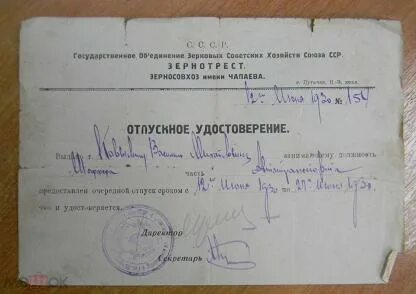 С. С. С. Р.
Государственное Объединение Зерновых Советских Хозяйств Союза ССР.
ЗЕРНОТРЕСТ.
ЗЕРНОСОВХОЗ имени ЧАПАЕВА.
12го Июня 1930 № 154
ОТПУСКНОЕ УДОСТОВЕРЕНИЕ.
Выдано т. Василию Михайловичу занимаемому должность
Шофера часть Автотранспорта
предоставлен очередной отпуск сроком с 12го Июня 1930 по 27 Июня 1930.
что и удостоверяется.
Директор
Секретарь